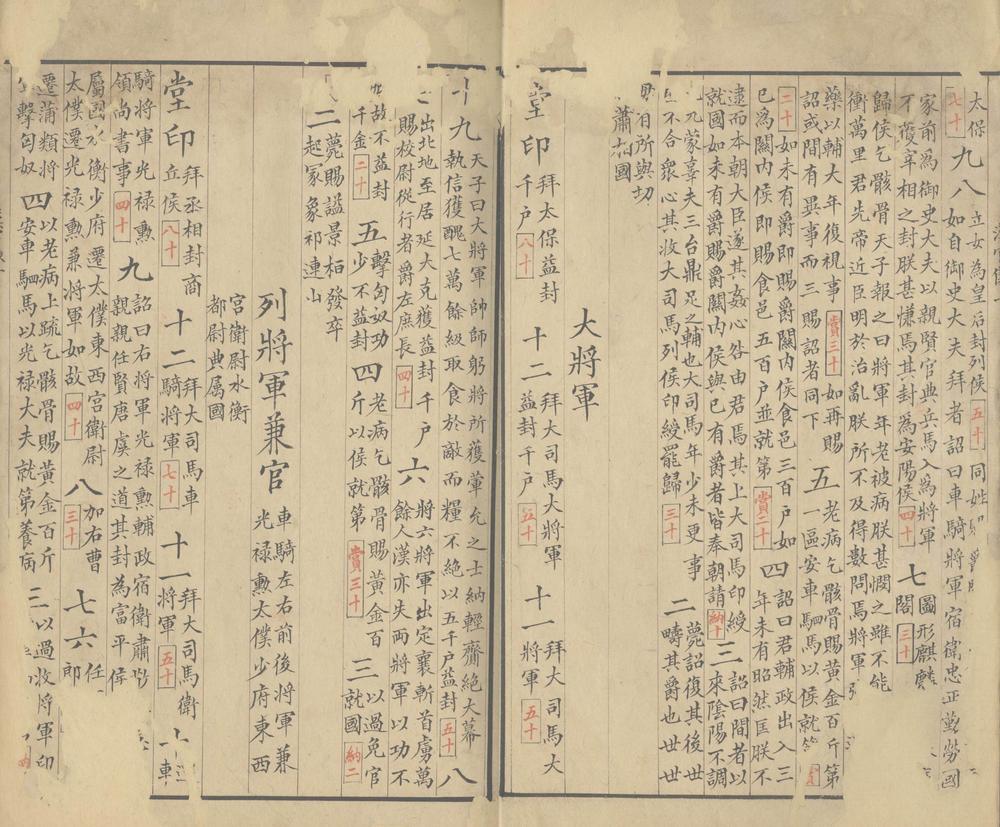 太保 九八 立女為皇后封列侯 五十 同姓
七十 如自御史大夫拜者詔曰車騎將軍宿衛忠正勤勞國
家前為御史大夫以親賢官典兵馬入為將軍 七 圖形麒麟
不獲宰相之封朕甚慊焉其封為安陽侯 四十 閣 三十
歸侯乞骸骨天子報之曰將軍年老被病朕甚憫之雖不能
衝萬里君先帝近臣明於治亂朕所不及得數問焉將軍
藥以輔天年復視事 賞三十 如再賜 五 老病乞骸骨賜黃金百斤第
詔或間有異事而三賜詔者同下 一區安車駟馬以侯就
二十 如未有爵即賜爵關內侯食邑三百戶如 四 詔曰君輔政出入三
已為關內侯即賜食邑五百戶並就第 賞二十 年未有昭然匡朕不
逮而本朝大臣遂其姦心咎由君焉其上大司馬印綬 三 詔曰間者以
就國如未有爵賜爵關內侯與已有爵者皆奉朝請 納十 來陰陽不調
元蒙喜夫三台鼎足之輔也大司馬年少未更事 二 薨詔復其後世
不合眾心其收大司馬列侯印綬罷歸 三十 疇其爵也世世
有所與功
蕭相國
大將軍
堂印 拜太保益封 十二 拜大司馬大將軍 十一 拜大司馬大
千戶 八十 益封千戶 五十 將軍 五十
十九 天子曰大將軍帥師躬將所獲葷允之士納輕齎絕大幕
執信獲醜七萬餘級取食於敵而糧不絕以五千戶益封 五十 八
出北地至居延大克獲益封千戶 六 將六將軍出定襄斬首虜萬
賜校尉從行者爵左庶長 四十 餘人漢亦失兩將軍以功不
故不益封 五 擊匈奴功 四 老病乞骸骨賜黃金百 三 以過免官
千金 二十 少不益封 斤以侯就第 賞三十 就國 納二
二 薨賜謚景桓發卒
起冢象祁連山
列將軍兼官 車騎左右前後將軍兼
光祿勳太僕少府東西
宮衛尉水衡
都尉典屬國
堂印 拜丞相封商 十二 拜大司馬車 十一 拜大司馬衛 十
丘侯 八十 騎將軍 七十 將軍 五十 車
騎將軍光祿勳 九 詔曰右將軍光祿勳輔政宿衛肅
領尚書事 四十 親親任賢唐虞之道其封為富平侯
屬國水衡少府遷太僕東西宮衛尉 八 加右曹 七六 任
太僕遷光祿勳兼將軍如故 四十 三十 郎
遷蒲類將 四 以老病上疏乞骸骨賜黃金百斤 三 以過收將軍印
擊匈奴 安車駟馬以光祿大夫就第養病